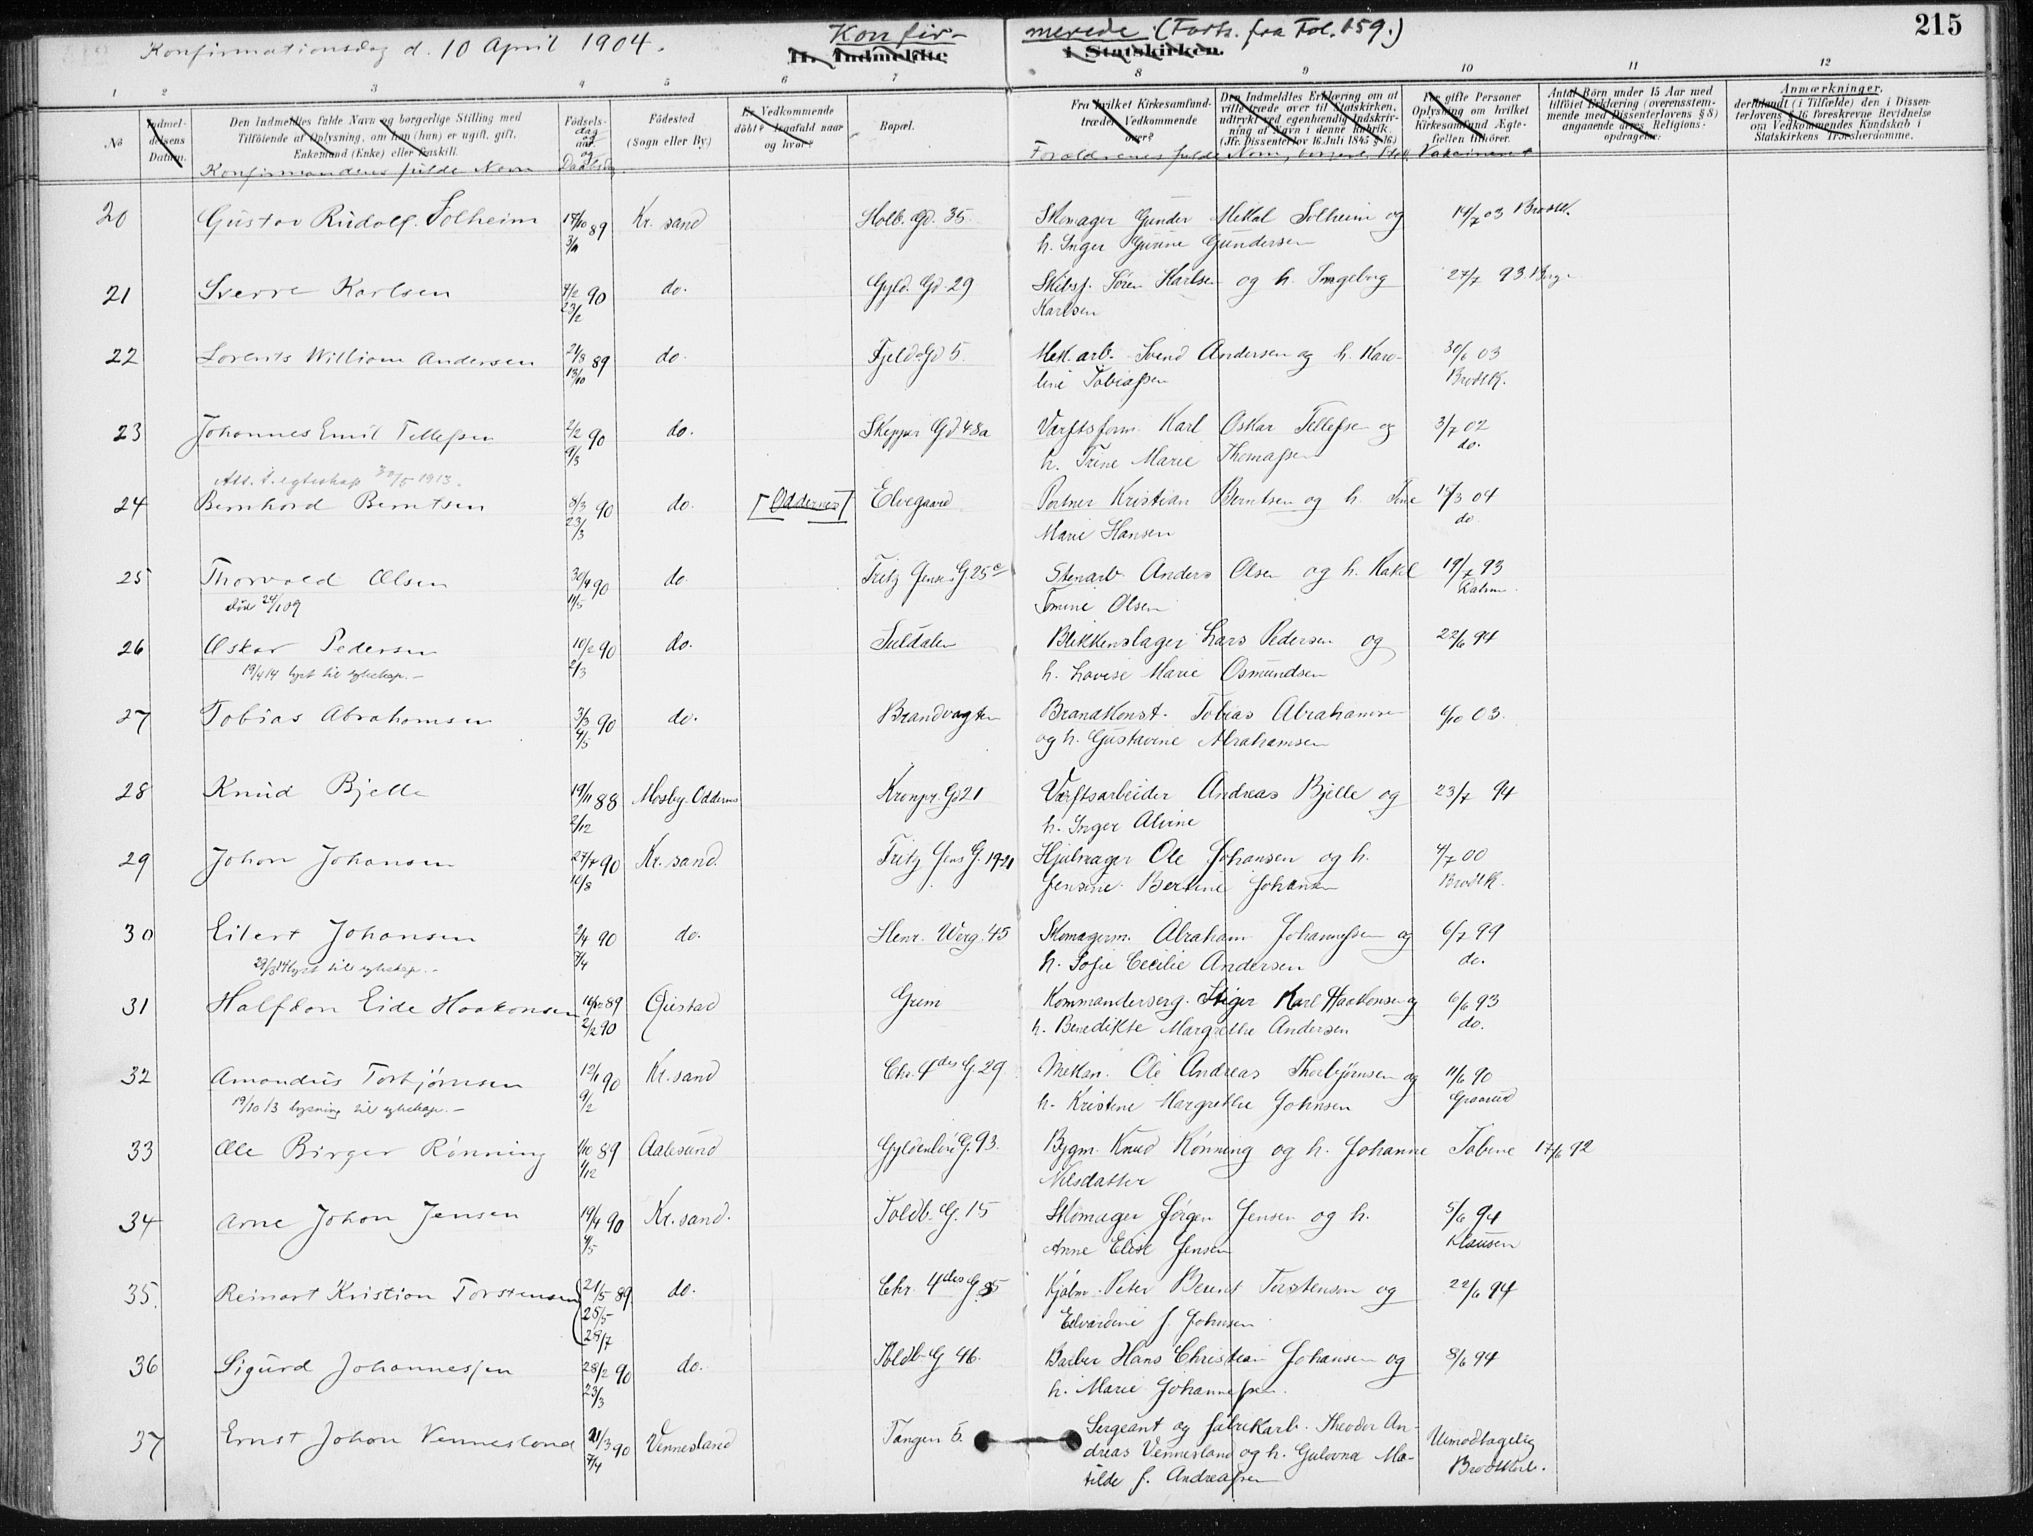 Konfirmationsdag d. 10 April 1904.
Konfir-
merede (Forts. fra Fol. 159.)
215
II. Indmeldte
i Statskirken.
1 2 3 4 5 6 7 8 9 10 11 12
No
Indmel-
delsens
Datum.
Den Indmeldtes fulde Navn og borgerlige Stilling med
Tilföiende af Oplysning, om han (hun) er ugift, gift,
Enkemand (Enke) eller fraskilt.
Konfirmandens fulde Navn
Födsels-
dag
og
aar
og
Daabsdag
Födested
(Sogn eller By)
Er Vedkommende
döbt? Isaafald naar
og hvor?
Bopæl.
Fra hvilket Kirkesamfund
træder Vedkommende
over?
Den Indmeldtes Erklæring om at
ville træde over til Statskirken,
udtrykt ved egenhændig Indskriv-
ning af Navn i denne Rubrik.
(Jfr. Dissenterlov 16 Juli 1845 § 16)
For gifte Personer
Oplysning om hvilket
Kirkesamfund Ægte-
fællen tilhörer.
Antal Börn under 15 Aar med
tilföiet Erklæring (overensstem-
mende med Dissenterlovens § 8)
angaaende deres Religions-
opdragelse.
Anmærkninger,
deriblandt (i Tilfælde) den i Dissen-
terlovens § 16 foreskrevne Bevidnelse
om Vedkommendes Kundskab i
Statskirkens Troeslærdomme.
Forældrenes fulde Navn, borgerl. Still. Vaksineret
20 Gustav Rudolf Solheim 89 Kr. sand Holb. Gd. 35. Skomager Gunder Mikal Solheim og 14/7 03 Brodtk.
h. Inger Gurine Gundersen
21 Sverre Karlsen 7/2 90 do. Gyld. Gd 29 Skibsf. Sören Karlsen og h. Ingeborg 27/7 93
23/2 Karlsen
22 Lorents William Andersen 21/8 89 do. Fjeld. Gd 5. Mek. arb. Svend Andersen og h. Karo- 30/6 03
13/10 line Tobiassen Brodtk.
23 Johannes Emil Tellefsen 2/2 90 do. Skipper Gd 48a Værftsform. Karl Oskar Tellefsen og 3/7 02
9/3 h. Trine Marie Thomassen do.
Att. t. egteskap 30/5 1913.
24 Bernhard Berntsen 8/3 90 do. [Oddernes] Elvegaard Portner Kristian Berntsen og h. Tine 15/3 04
23/3 Marie Hansen do
25 Thorvald Olsen 30/4 90 do. Fritz Jens. G. 25 c Stenarb. Anders Olsen og h. Rakel 19/7 93
död 24/1 09 11/5 Tomine Olsen
26 Oskar Pedersen 10/2 90 do. Suldalen Blikkenslager Lars Pedersen og 22/6 94
19/4 14 lyst til egteskap. 2/3 h. Lovise Marie Osmundsen
27 Tobias Abrahamsen 3/3 90 do. Brandvagten Brandkonst. Tobias Abrahamsen 6/10 03.
4/5 og h. Gustavine Abrahamsen
28 Knud Bjelle 19/11 88 Mosby. Oddernes Kronpr. Gd 21 Værftsarbeider Andreas Bjelle og 23/7 94
2/12 h. Inger Alvine
29 Johan Johansen 27/7 90 Kr. sand. Fritz Jens G. 19 Hjulmager Ole Johansen og h. 4/7 00
10/8 Jensine Bertine Johansen Brodtk.
30 Eilert Johansen 2/4 90 do. Henr. Werg. 45 Skomagerm. Abraham Johannessen og 6/7 99
29/3 14 lyst til egteskap. 7/4 h. Sofie Cecilie Andersen do.
31 Halfdan Eide Haakonsen 89 Gjerstad Grim Kommandersergt. Stiger Karl Haakonsen og 6/6 93
2/2 90 h. Benedikte Margrethe Andersen do.
32 Amandus Torbjørnsen 12/1 90 Kr. sand Chr. 4des G. 29 Mekan. Ole Andreas Thorbjørnsen og 11/6 90
19/10 13 lysning til egteskap. 9/2 h. Kristine Margrethe Johnsen Graarud
33 Ole Birger Rønning 1/10 89 Aalesund Gyldenløv. G. 93. Bygm. Knud Rønning og h. Johanne Tobine 17/6 92
1/12 Nilsdatter
34 Arne Johan Jensen 14/4 90 Kr. sand. Toldb. G. 15 Skomager Jørgen Jensen og h. 5/6 94
4/5 Anne Elise Jensen Klausen
35. Reinart Kristian Torstensen 21/5 89 do. Chr. 4des G. 85 Kjølm. Peter Berent Torstensen og 22/6 94
25/5 Edvardine f. Johnsen
28/7
36 Sigurd Johannessen 28/2 90 do. Toldb. G 46. Barber Hans Christian Johansen og 8/6 94
23/3 h. Marie Johannessen.
37 Ernst Johan Vennesland 21/3 90 Vennesland Tangen 5. Sergeant og fabrikarb. Theodor An- Uimodtagelig
7/4 dreas Vennesland og h. Gulovna Ma- Brodtkorb.
tilde f. Andreassen